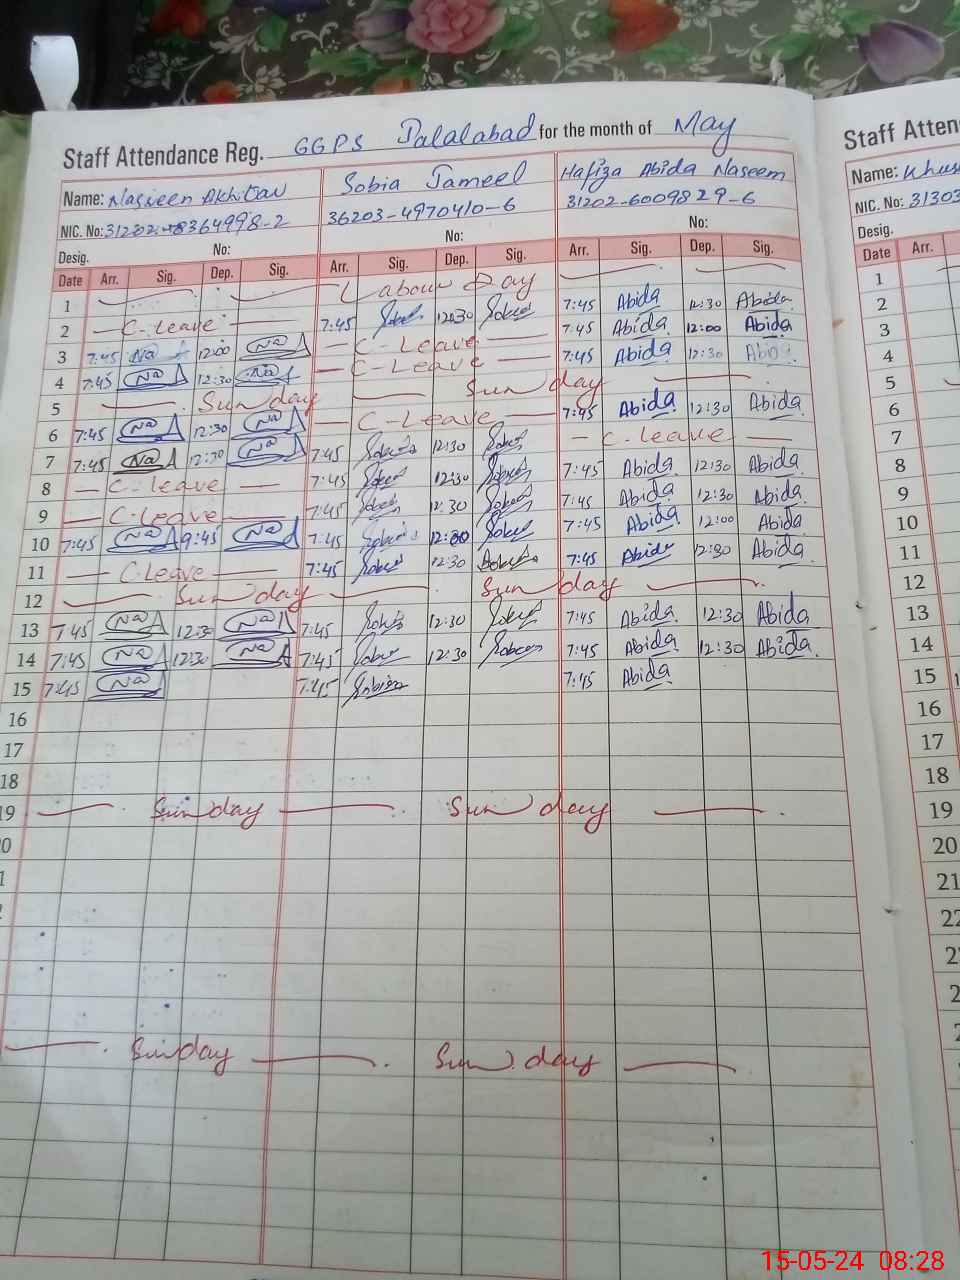 Staff Attendance Reg. GGPS Jalalabad for the month of May
Name: Nasreen Akhtar Sobia Jameel Hafiza Abida Naseem
NIC. No: 31202-8364998-2 36203-4970410-6 31202-6009829-6
Desig. No: No: No:
Date Arr. Sig. Dep. Sig. Arr. Sig. Dep. Sig. Arr. Sig. Dep. Sig.
1 Labour Day
2 C-Leave 7:45 12:30 7:45 Abida 12:30 Abida
3 7:45 Na 12:00 Na C-Leave 7:45 Abida 12:00 Abida
4 7:45 Na 12:30 Na C-Leave 7:45 Abida 12:30 Abida
5 Sunday Sunday
6 7:45 Na 12:30 Na C-Leave 7:45 Abida 12:30 Abida
7 7:45 Na 12:30 Na 7:45 12:30 C-Leave
8 C-Leave 7:45 12:30 7:45 Abida 12:30 Abida
9 C-Leave 7:45 12:30 7:45 Abida 12:30 Abida
10 7:45 Na 9:45 Na 7:45 7:45 Abida 12:00 Abida
11 C-Leave 7:45 12:30 7:45 Abida 12:30 Abida
12 Sunday Sunday
13 7:45 Na 12:30 Na 7:45 12:30 7:45 Abida 12:30 Abida
14 7:45 Na 12:30 Na 7:45 12:30 7:45 Abida 12:30 Abida
15 7:45 Na 7:45 7:45 Abida
16
17
18
19 Sunday Sunday
0
1
2
Sunday Sunday
Staff Atten
Name:
NIC. No: 31303
Desig.
Date Arr.
1
2
3
4
5
6
7
8
9
10
11
12
13
14
15
16
17
18
19
20
21
22
2
2
15-05-24 08:28